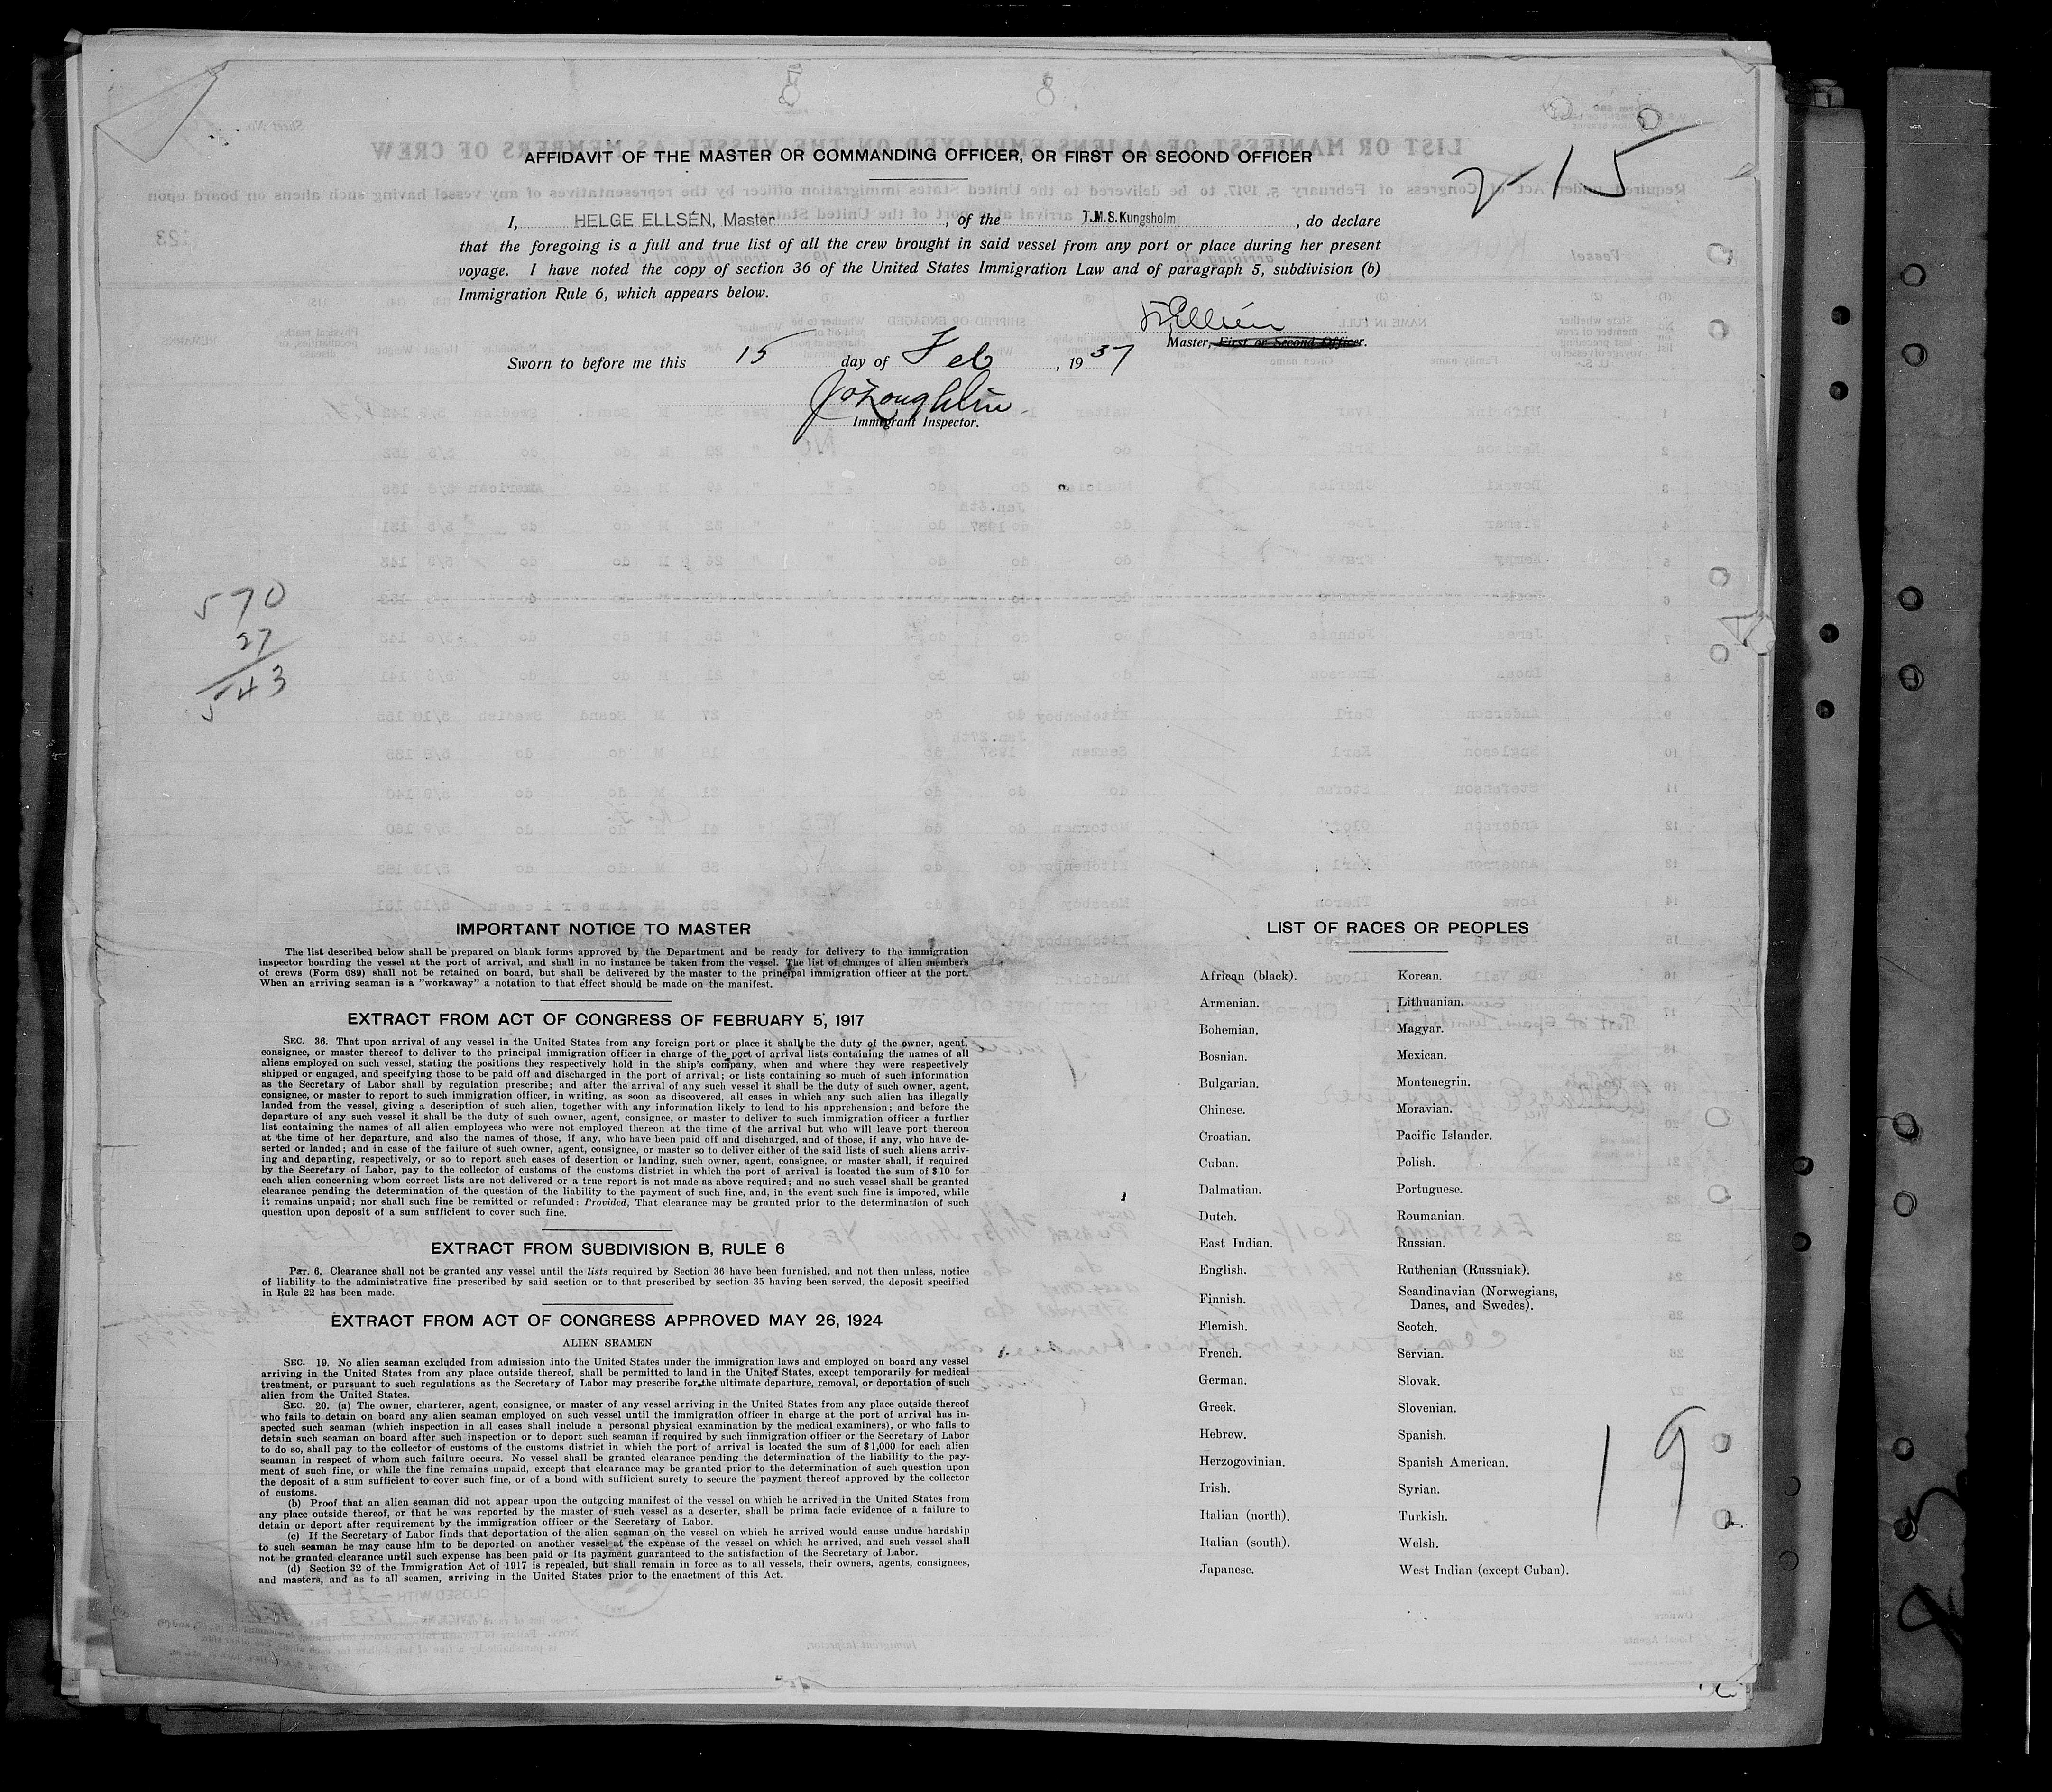 AFFIDAVIT OF THE MASTER OR COMMANDING OFFICER, OR FIRST OR SECOND OFFICER
2-15
I, HELGE ELLSÉN, Master, of the T.M.S. Kungsholm, do declare
that the foregoing is a full and true list of all the crew brought in said vessel from any port or place during her present
voyage. I have noted the copy of section 36 of the United States Immigration Law and of paragraph 5, subdivision (b)
Immigration Rule 6, which appears below.
HEllsén
Master, First or Second Officer.
Sworn to before me this 15 day of Feb, 1937
Immigrant Inspector.
570
27
543
IMPORTANT NOTICE TO MASTER
The list described below shall be prepared on blank forms approved by the Department and be ready for delivery to the immigration
inspector boarding the vessel at the port of arrival, and shall in no instance be taken from the vessel. The list of changes of alien members
of crews (Form 689) shall not be retained on board, but shall be delivered by the master to the principal immigration officer at the port.
When an arriving seaman is a "workaway" a notation to that effect should be made on the manifest.
EXTRACT FROM ACT OF CONGRESS OF FEBRUARY 5, 1917
SEC. 36. That upon arrival of any vessel in the United States from any foreign port or place it shall be the duty of the owner, agent,
consignee, or master thereof to deliver to the principal immigration officer in charge of the port of arrival lists containing the names of all
aliens employed on such vessel, stating the positions they respectively hold in the ship's company, when and where they were respectively
shipped or engaged, and specifying those to be paid off and discharged in the port of arrival; or lists containing so much of such information
as the Secretary of Labor shall by regulation prescribe; and after the arrival of any such vessel it shall be the duty of such owner, agent,
consignee, or master to report to such immigration officer, in writing, as soon as discovered, all cases in which any such alien has illegally
landed from the vessel, giving a description of such alien, together with any information likely to lead to his apprehension; and before the
departure of any such vessel it shall be the duty of such owner, agent, consignee, or master to deliver to such immigration officer a further
list containing the names of all alien employees who were not employed thereon at the time of the arrival but who will leave port thereon
at the time of her departure, and also the names of those, if any, who have been paid off and discharged, and of those, if any, who have de-
serted or landed; and in case of the failure of such owner, agent, consignee, or master so to deliver either of the said lists of such aliens arriv-
ing and departing, respectively, or so to report such cases of desertion or landing, such owner, agent, consignee, or master shall, if required
by the Secretary of Labor, pay to the collector of customs of the customs district in which the port of arrival is located the sum of $10 for
each alien concerning whom correct lists are not delivered or a true report is not made as above required; and no such vessel shall be granted
clearance pending the determination of the question of the liability to the payment of such fine, and, in the event such fine is imposed, while
it remains unpaid; nor shall such fine be remitted or refunded: Provided, That clearance may be granted prior to the determination of such
question upon deposit of a sum sufficient to cover such fine.
EXTRACT FROM SUBDIVISION B, RULE 6
Par. 6. Clearance shall not be granted any vessel until the lists required by Section 36 have been furnished, and not then unless, notice
of liability to the administrative fine prescribed by said section or to that prescribed by section 35 having been served, the deposit specified
in Rule 22 has been made.
EXTRACT FROM ACT OF CONGRESS APPROVED MAY 26, 1924
ALIEN SEAMEN
SEC. 19. No alien seaman excluded from admission into the United States under the immigration laws and employed on board any vessel
arriving in the United States from any place outside thereof, shall be permitted to land in the United States, except temporarily for medical
treatment, or pursuant to such regulations as the Secretary of Labor may prescribe for the ultimate departure, removal, or deportation of such
alien from the United States.
SEC. 20. (a) The owner, charterer, agent, consignee, or master of any vessel arriving in the United States from any place outside thereof
who fails to detain on board any alien seaman employed on such vessel until the immigration officer in charge at the port of arrival has in-
spected such seaman (which inspection in all cases shall include a personal physical examination by the medical examiners), or who fails to
detain such seaman on board after such inspection or to deport such seaman if required by such immigration officer or the Secretary of Labor
to do so, shall pay to the collector of customs of the customs district in which the port of arrival is located the sum of $1,000 for each alien
seaman in respect of whom such failure occurs. No vessel shall be granted clearance pending the determination of the liability to the pay-
ment of such fine, or while the fine remains unpaid, except that clearance may be granted prior to the determination of such question upon
the deposit of a sum sufficient to cover such fine, or of a bond with sufficient surety to secure the payment thereof approved by the collector
of customs.
(b) Proof that an alien seaman did not appear upon the outgoing manifest of the vessel on which he arrived in the United States from
any place outside thereof, or that he was reported by the master of such vessel as a deserter, shall be prima facie evidence of a failure to
detain or deport after requirement by the immigration officer or the Secretary of Labor.
(c) If the Secretary of Labor finds that deportation of the alien seaman on the vessel on which he arrived would cause undue hardship
to such seaman he may cause him to be deported on another vessel at the expense of the vessel on which he arrived, and such vessel shall
not be granted clearance until such expense has been paid or its payment guaranteed to the satisfaction of the Secretary of Labor.
(d) Section 32 of the Immigration Act of 1917 is repealed, but shall remain in force as to all vessels, their owners, agents, consignees,
and masters, and as to all seamen, arriving in the United States prior to the enactment of this Act.
LIST OF RACES OR PEOPLES
African (black).
Armenian.
Bohemian.
Bosnian.
Bulgarian.
Chinese.
Croatian.
Cuban.
Dalmatian.
Dutch.
East Indian.
English.
Finnish.
Flemish.
French.
German.
Greek.
Hebrew.
Herzogovinian.
Irish.
Italian (north).
Italian (south).
Japanese.
Korean.
Lithuanian.
Magyar.
Mexican.
Montenegrin.
Moravian.
Pacific Islander.
Polish.
Portuguese.
Roumanian.
Russian.
Ruthenian (Russniak).
Scandinavian (Norwegians,
Danes, and Swedes).
Scotch.
Servian.
Slovak.
Slovenian.
Spanish.
Spanish American.
Syrian.
Turkish.
Welsh.
West Indian (except Cuban).
19